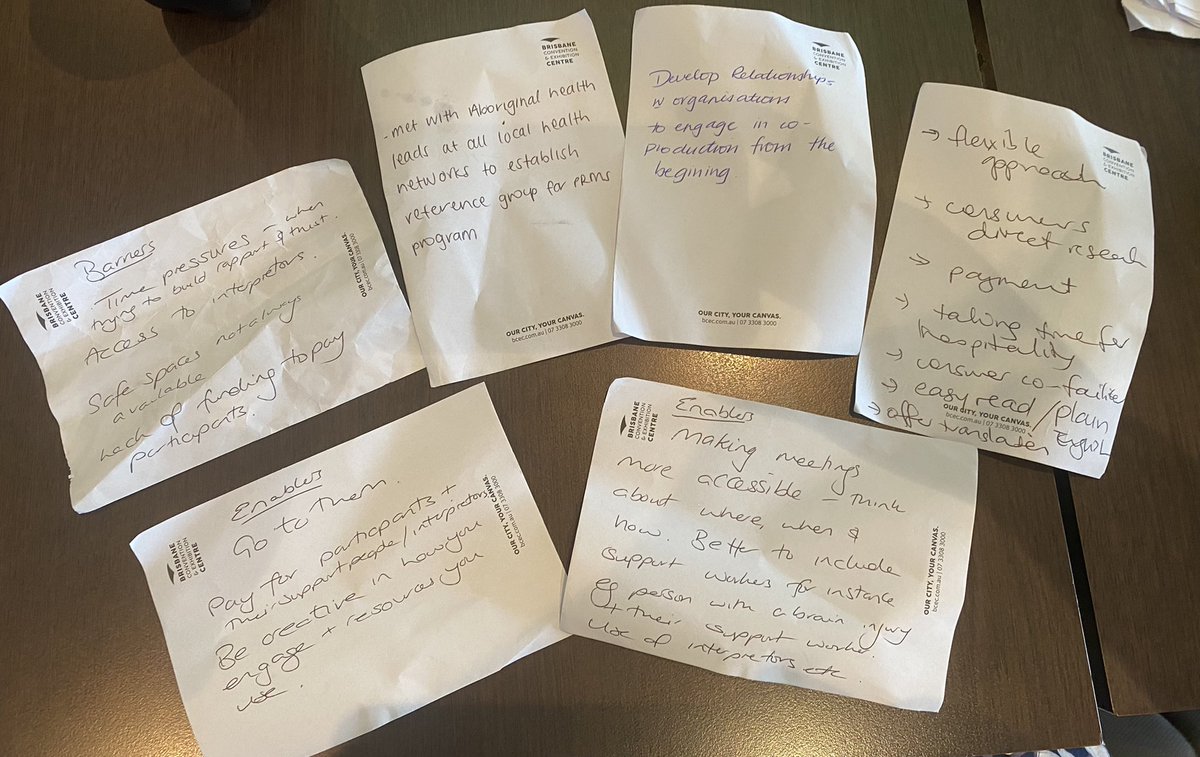 BRISBANE
CONVENTION
& EXHIBITION
CENTRE
Barriers
Time pressures - when
trying to build rapport & trust.
Access to interpretors.
Safe spaces not always
available
Lack of funding to pay
participants.
OUR CITY, YOUR CANVAS.
bcec.com.au | 07 3308 3000
BRISBANE
CONVENTION
& EXHIBITION
CENTRE
- met with Aboriginal health
leads at all local health
networks to establish
reference group for PRMs
program
OUR CITY, YOUR CANVAS.
bcec.com.au | 07 3308 3000
BRISBANE
CONVENTION
& EXHIBITION
CENTRE
Develop Relationships
w organisations
to engage in co-
production from the
begining.
OUR CITY, YOUR CANVAS.
bcec.com.au | 07 3308 3000
BRISBANE
CONVENTION
& EXHIBITION
CENTRE
→ flexible
approach
→ consumers
direct research
→ payment
→ taking time for
hospitality
→ consumer co-facilite
→ easy read / plain
English
→ offer translater
OUR CITY, YOUR CANVAS.
bcec.com.au | 07 3308 3000
BRISBANE
CONVENTION
& EXHIBITION
CENTRE
Enablers
Go to them.
Pay for participants +
their support people/interpretors
Be creative in how you
engage + resources you
use.
OUR CITY, YOUR CANVAS.
bcec.com.au | 07 3308 3000
BRISBANE
CONVENTION
& EXHIBITION
CENTRE
Enablers
Making meetings
more accessible - think
about where, when &
how. Better to include
support workers for instance
Eg person with a brain injury
+ their support worker.
Use of interpretors etc.
OUR CITY, YOUR CANVAS.
bcec.com.au | 07 3308 3000